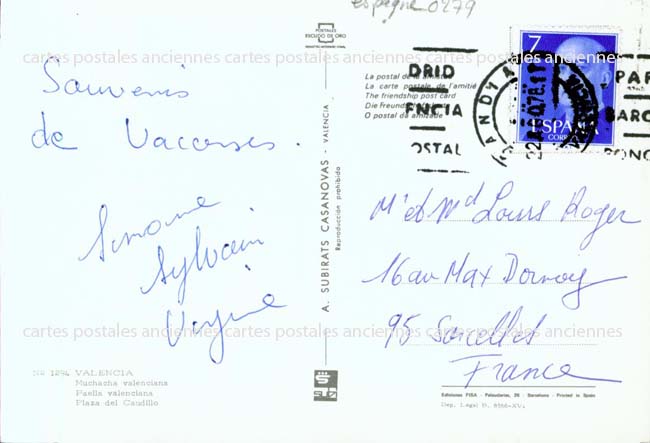 espagne 0279
POSTALES
ESCUDO DE ORO
cartes postales anciennes cartes postales anciennes cartes postales anciennes
Souvenirs
de Vacances.
Simone
Sylvain
Virginie
La postal de la
La carte postale de l'amitié
The friendship post card
Die Freundschafts
O postal da amizade
A. SUBIRATS CASANOVAS - VALENCIA
Reproducción prohibida
DRID
ENCIA
OSTAL
7
ESPAÑA
CORREOS
PAR
BARC
PONC
Mr et Md Louis Roger
16 av Max Dormoy
95 Sarcelles
France
cartes postales anciennes cartes postales anciennes cartes postales anciennes
Nº 1294 VALENCIA
Muchacha valenciana
Paella valenciana
Plaza del Caudillo
SUB
Ediciones FISA - Palaudarias, 26 - Barcelona - Printed in Spain
Dep. Legal B. 8356-XV.